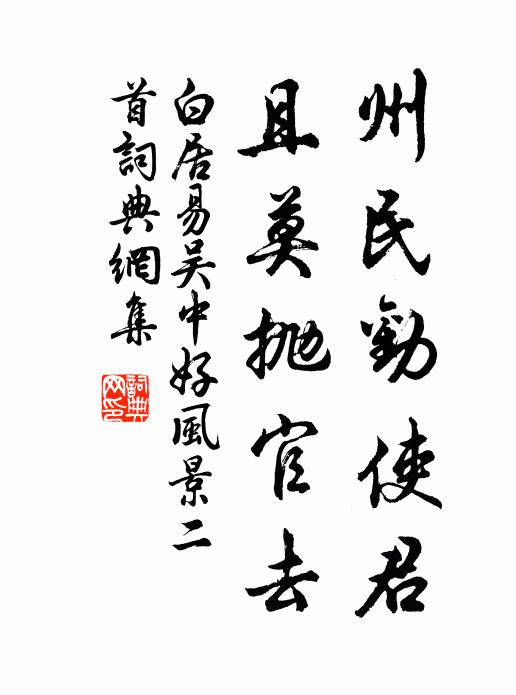 州民勸使君
且莫拋官去
白居易吳中好風景二
首詞典網集
詞典
网印